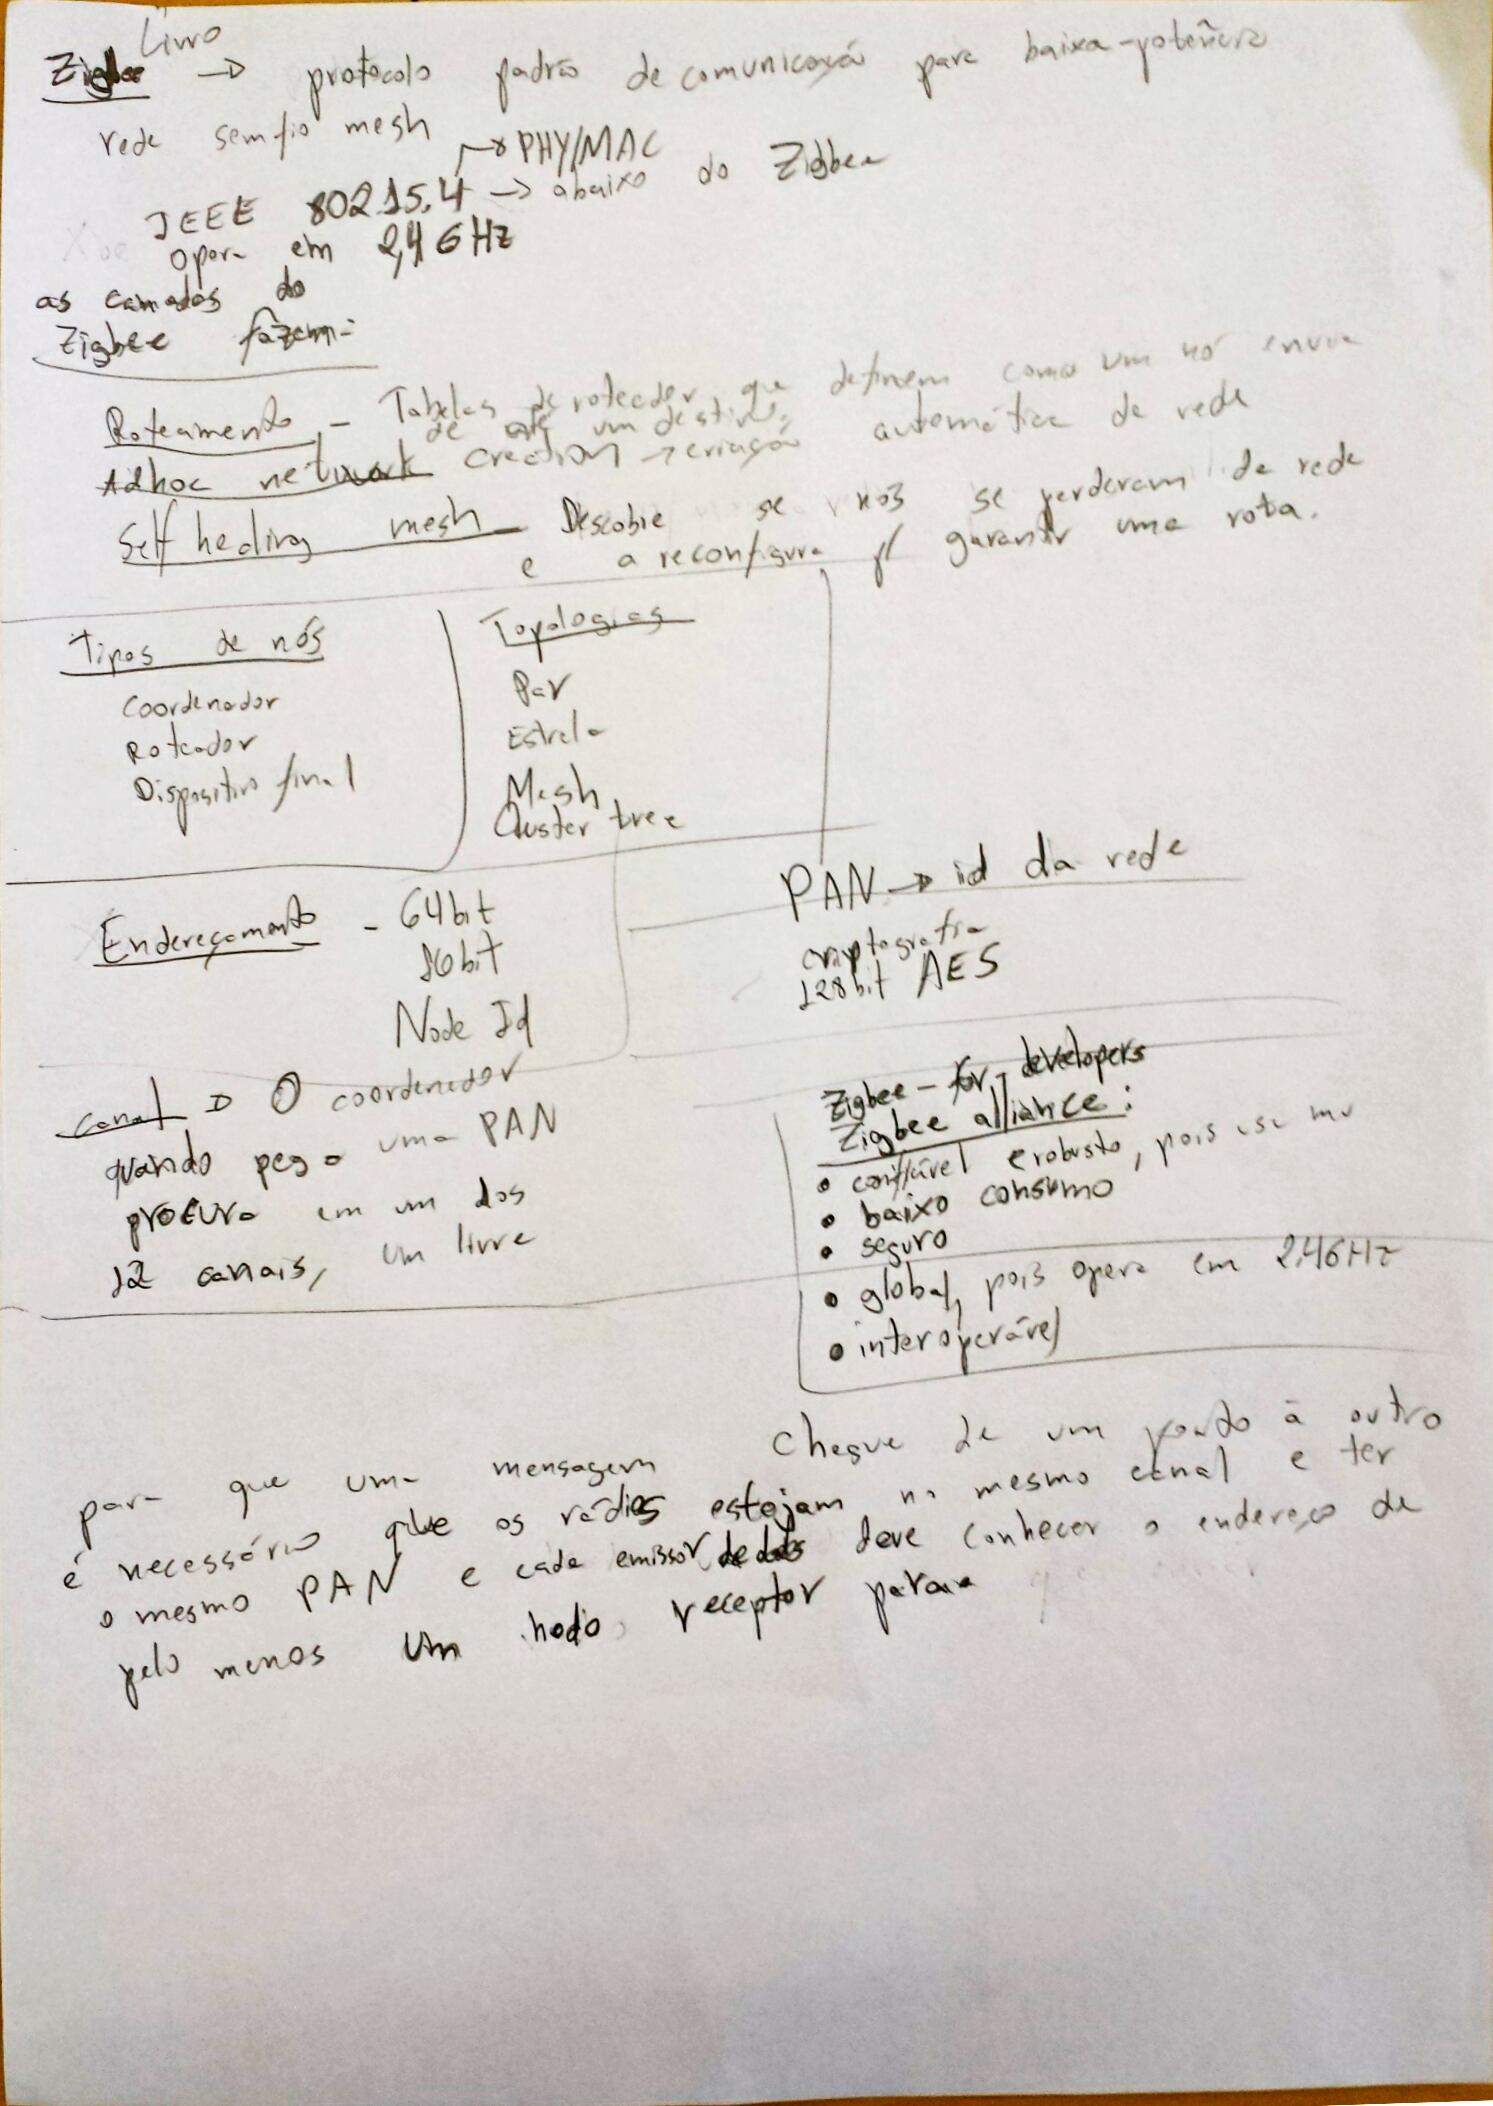 Livro
Zigbee → protocolo padrão de comunicação para baixa-potência
rede sem fio mesh
→ PHY/MAC
IEEE 802.15.4 → abaixo do Zigbee
opera em 2,4 GHz
as camadas do
Zigbee fazem:
Roteamento - Tabelas de roteador que definem como um nó envia
de até um destino.
Adhoc network creation → criação automática de rede
Self healing mesh - Descobre se nós se perderam da rede
e a reconfigura p/ garantir uma rota.
Tipos de nós
Coordenador
Roteador
Dispositivo final
Topologias
Par
Estrela
Mesh
Cluster tree
Endereçamento - 64bit
16bit
Node Id
PAN → id da rede
criptografia
128bit AES
canal → O coordenador
quando pega uma PAN
procura em um dos
12 canais, um livre
Zigbee - for - developers
Zigbee alliance:
• confiável e robusto, pois
• baixo consumo
• seguro
• global, pois opera em 2,4GHz
• interoperável
para que uma mensagem chegue de um ponto à outro
é necessário que os rádios estejam no mesmo canal e ter
o mesmo PAN e cada emissor de dados deve conhecer o endereço de
pelo menos um nodo receptor para